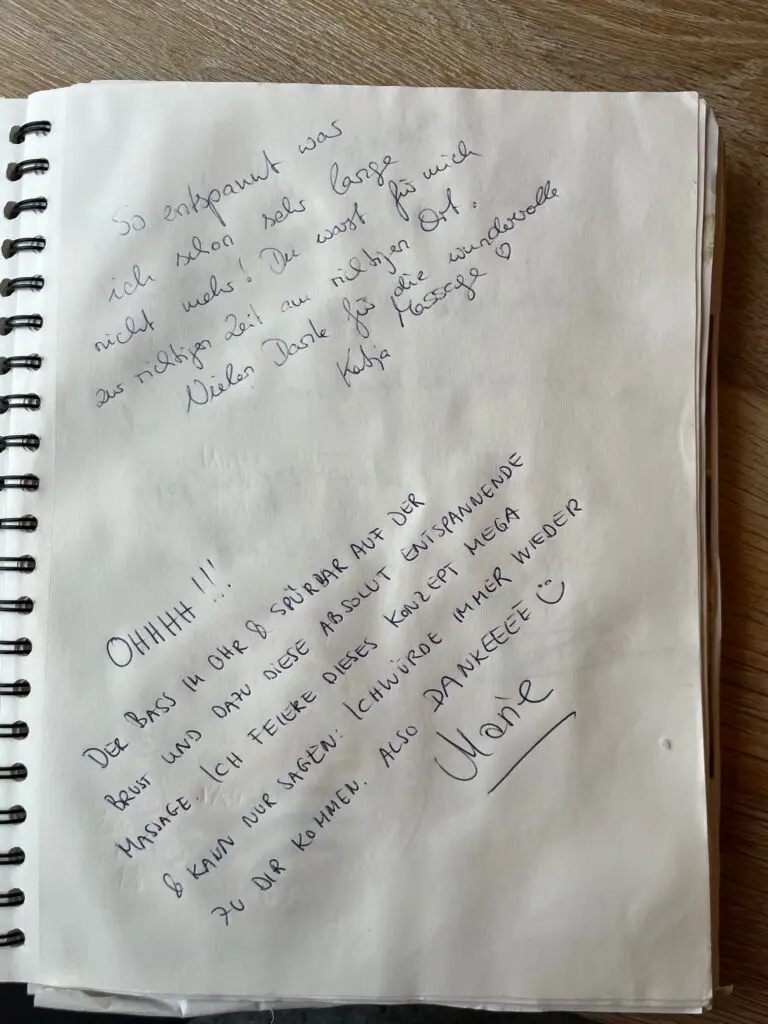 So entspannt war
ich schon sehr lange
nicht mehr! Du warst für mich
zur richtigen Zeit am richtigen Ort.
Vielen Danke für die wundervolle
Massage ♡
Katja
OHHHH !!!
DER BASS IM OHR & SPÜRBAR AUF DER
BRUST UND DAZU DIESE ABSOLUT ENTSPANNENDE
MASSAGE. ICH FEIERE DIESES KONZEPT MEGA
& KANN NUR SAGEN: ICH WÜRDE IMMER WIEDER
ZU DIR KOMMEN. ALSO DANKEEEE ☺
Marie